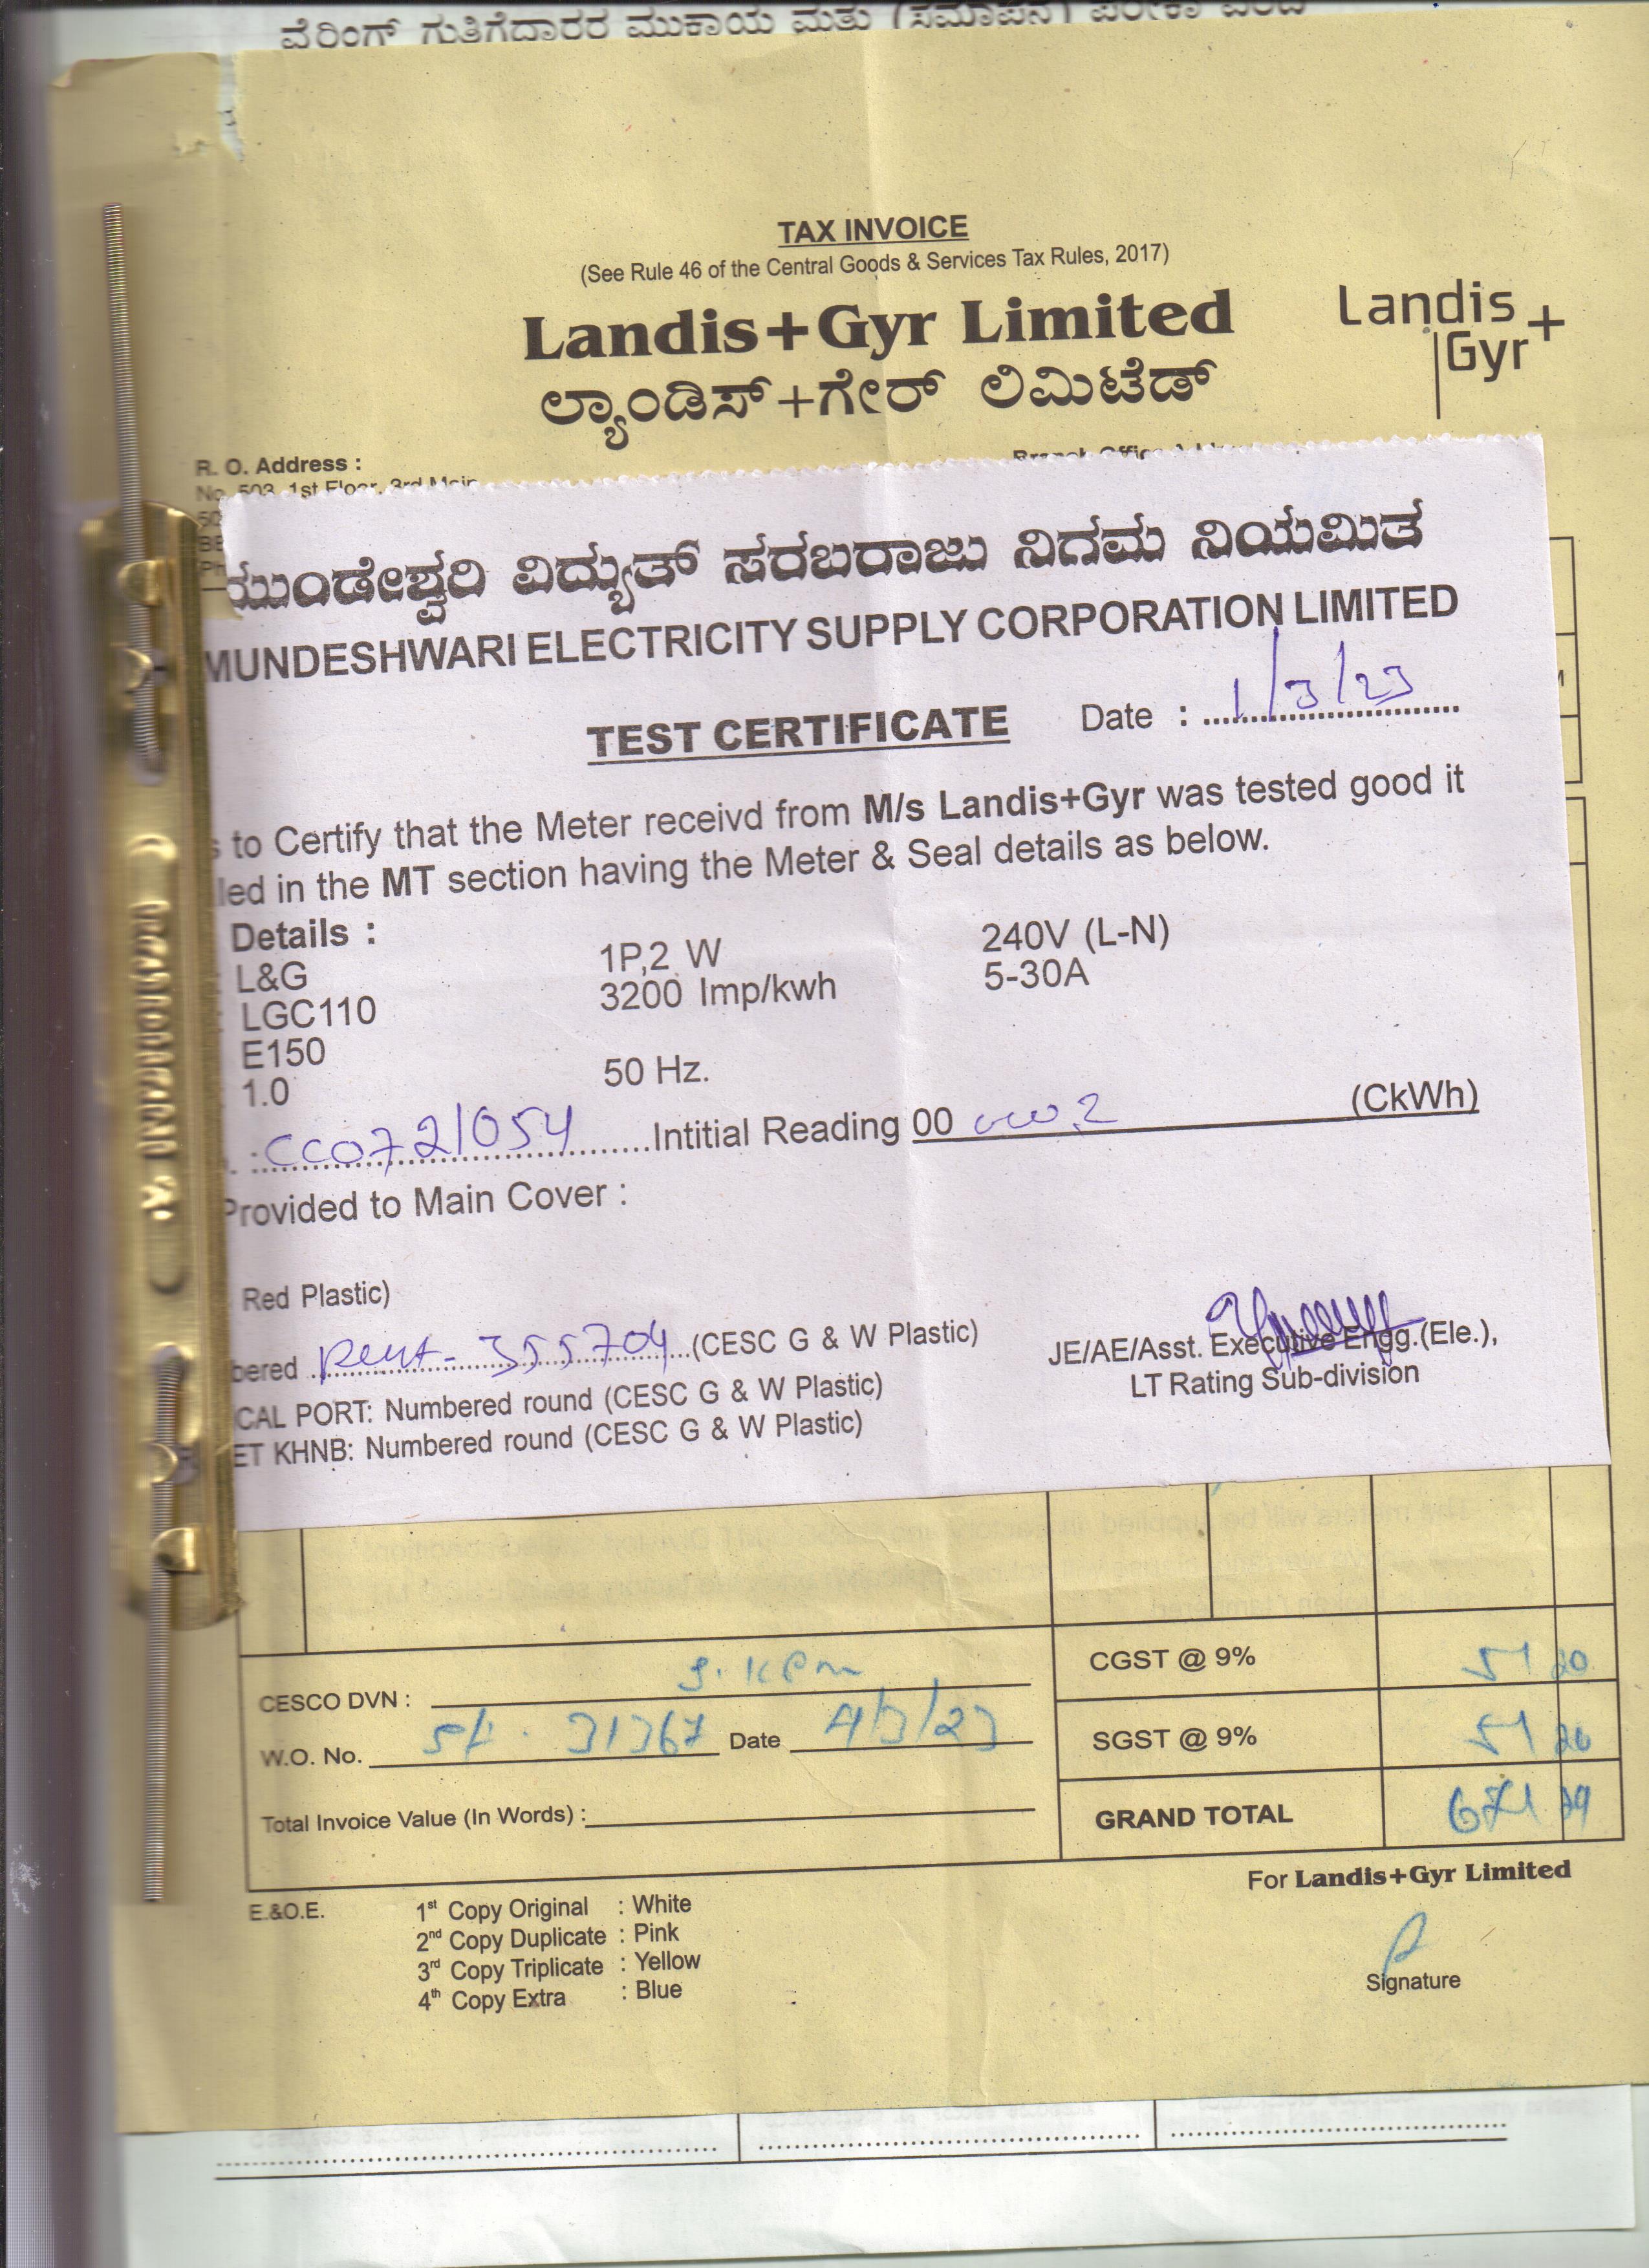 TAX INVOICE
(See Rule 46 of the Central Goods & Services Tax Rules, 2017)
Landis+Gyr Limited
ಲ್ಯಾಂಡಿಸ್+ಗೇರ್ ಲಿಮಿಟೆಡ್
Landis
Gyr+
R. O. Address :
No. 503, 1st Floor, 3rd Main
ಮುಂಡೇಶ್ವರಿ ವಿದ್ಯುತ್ ಸರಬರಾಜು ನಿಗಮ ನಿಯಮಿತ
MUNDESHWARI ELECTRICITY SUPPLY CORPORATION LIMITED
TEST CERTIFICATE Date : 1/3/23
s to Certify that the Meter receivd from M/s Landis+Gyr was tested good it
led in the MT section having the Meter & Seal details as below.
Details :
L&G 1P,2 W 240V (L-N)
LGC110 3200 Imp/kwh 5-30A
E150
1.0 50 Hz.
CC0721054 Intitial Reading 00 (CkWh)
Provided to Main Cover :
Red Plastic)
bered 355704 (CESC G & W Plastic)
CAL PORT: Numbered round (CESC G & W Plastic)
ET KHNB: Numbered round (CESC G & W Plastic)
JE/AE/Asst. Executive Engg.(Ele.),
LT Rating Sub-division
CGST @ 9% 51 20
CESCO DVN :
W.O. No. 31367 Date 4/3/23
SGST @ 9% 51 20
Total Invoice Value (In Words) :
GRAND TOTAL 671 39
For Landis+Gyr Limited
E.&O.E.
1st Copy Original : White
2nd Copy Duplicate : Pink
3rd Copy Triplicate : Yellow
4th Copy Extra : Blue
Signature